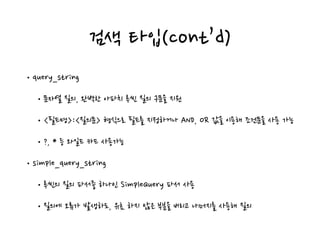 검색 타입(cont'd)
• query_string
• 문자열 질의. 완벽한 아파치 루씬 질의 구문을 지원
• <필드명>:<질의문> 형식으로 필드를 지정하거나 AND, OR 값을 이용해 조건문을 사용 가능
• ?, * 등 와일드 카드 사용가능
• simple_query_string
• 루씬의 질의 파서중 하나인 SimpleQuery 파서 사용
• 질의에 오류가 발생하도, 유효 하지 않은 부분을 버리고 나머지를 사용해 질의